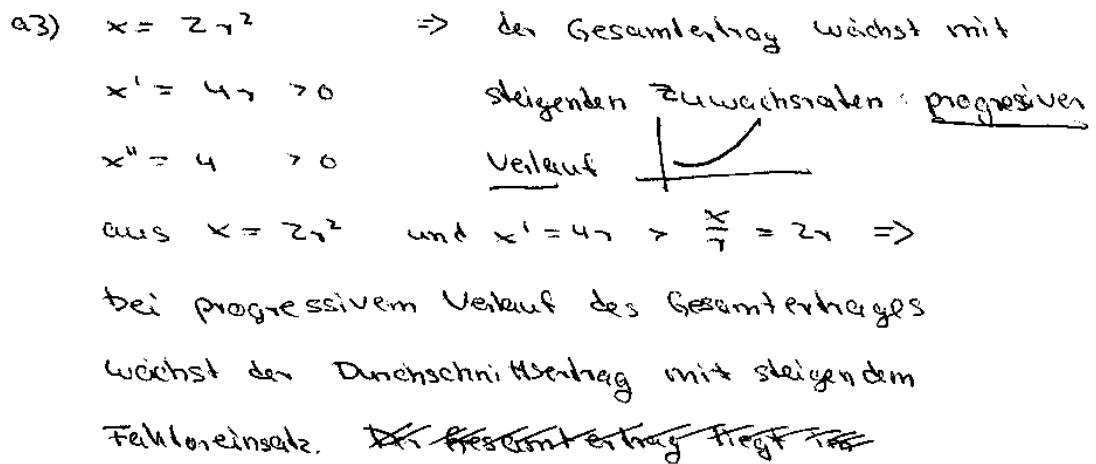 a3) x = 2r² => der Gesamtertrag wächst mit
x' = 4r > 0 steigenden Zuwachsraten: progresiver
x'' = 4 > 0 Verlauf
aus x = 2r² und x' = 4r > x/r = 2r =>
bei progressivem Verlauf des Gesamtertrages
wächst der Durchschnittsertrag mit steigendem
Faktoreinsatz. Der Gesamtertrag liegt